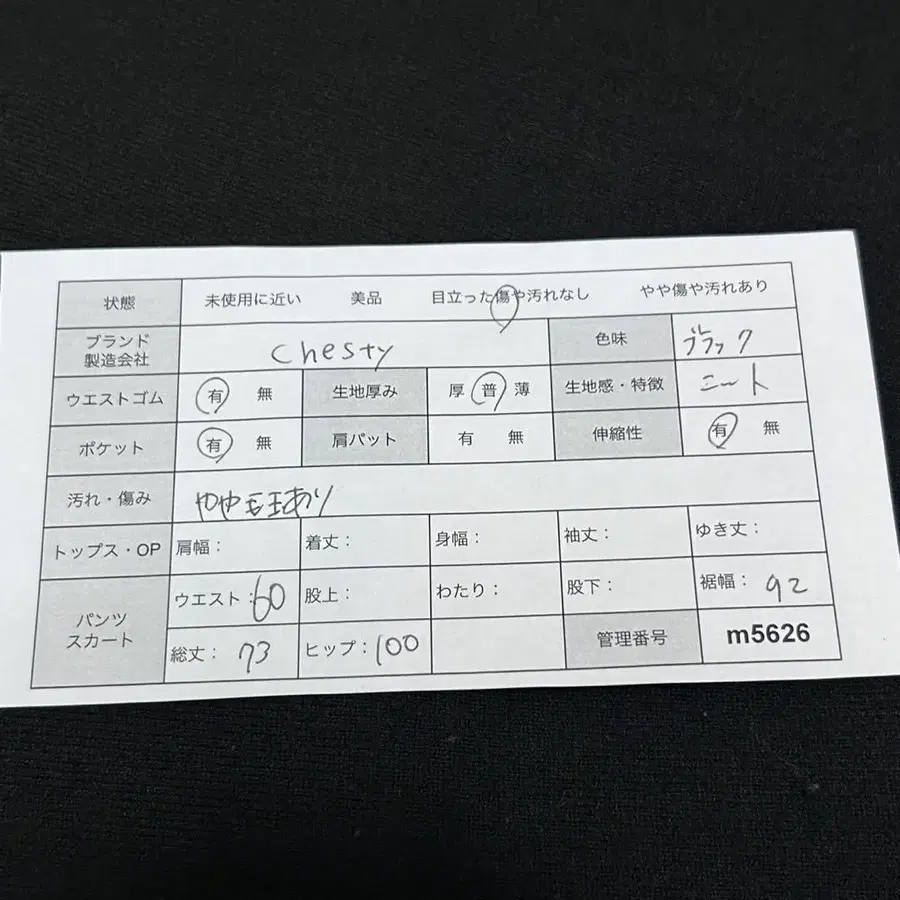 状態 未使用に近い 美品 目立った傷や汚れなし やや傷や汚れあり
ブランド 製造会社 Chesty 色味 ブラック
ウエストゴム 有 無 生地厚み 厚 普 薄 生地感・特徴 ニート
ポケット 有 無 肩パット 有 無 伸縮性 有 無
汚れ・傷み やや毛玉あり
トップス・OP 肩幅: 着丈: 身幅: 袖丈: ゆき丈:
パンツ スカート ウエスト:60 股上: わたり: 股下: 裾幅: 92
総丈: 73 ヒップ:100 管理番号 m5626